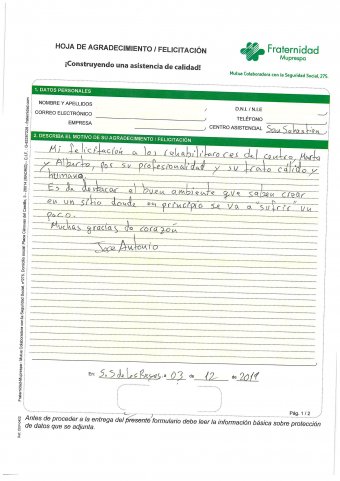 HOJA DE AGRADECIMIENTO / FELICITACIÓN
¡Construyendo una asistencia de calidad!
Fraternidad
Muprespa
Mutua Colaboradora con la Seguridad Social, 275
1. DATOS PERSONALES
NOMBRE Y APELLIDOS
D.N.I. / N.I.E
CORREO ELECTRÓNICO
TELÉFONO
EMPRESA
CENTRO ASISTENCIAL San Sebastián
2. DESCRIBA EL MOTIVO DE SU AGRADECIMIENTO / FELICITACIÓN
Mi felicitación a los rehabilitadores del centro, Marta
y Alberto, por su profesionalidad y su trato calido y
humano.
Es de destacar el buen ambiente que saben crear
en un sitio donde en principio se va a "sufrir" un
poco.
Muchas gracias de corazón
Jose Antonio
En: S.S de los Reyes a 03 de 12 de 2019
Pág. 1 / 2
Antes de proceder a la entrega del presente formulario debe leer la información básica sobre protección
de datos que se adjunta.